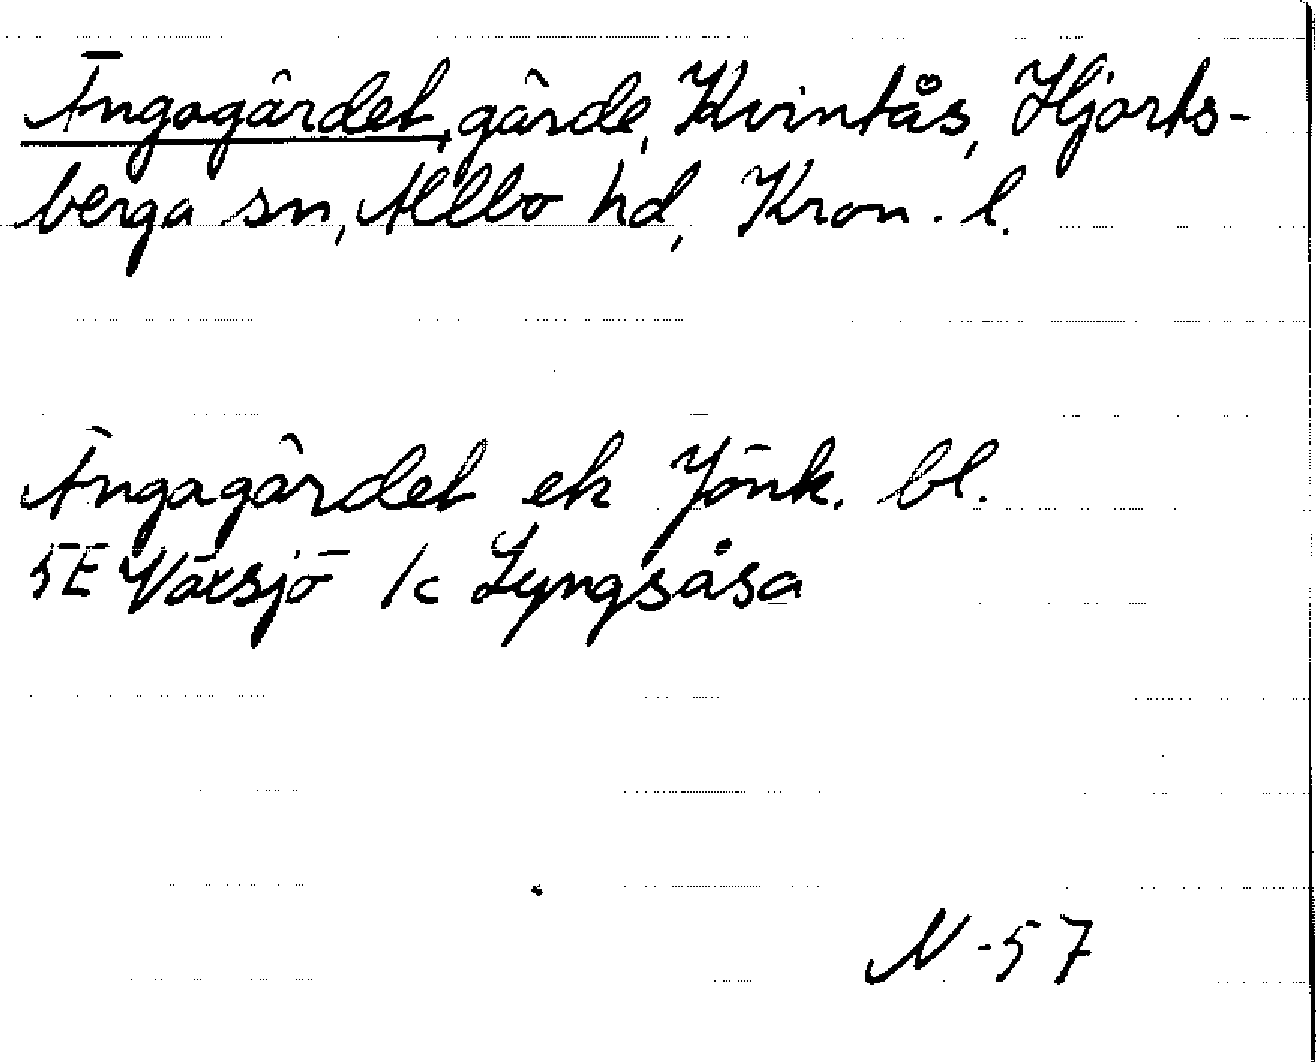 Ängagärdet, gärde, Kvintås, Hjorts-
berga sn, Allbo hd, Kron. l.
Ängagärdet ek Jönk. bl.
5E Växsjö 1c Lyngsåsa
N-57